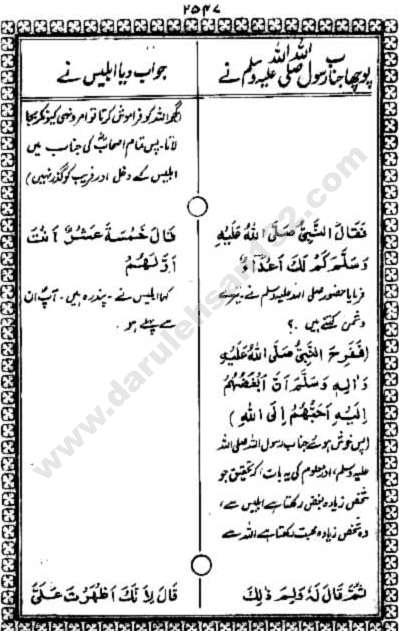 ۲۵۴۷
پوچھا جناب رسول اللہ صلی اللہ علیہ وسلم نے
جواب دیا ابلیس نے
اللہ کو فراموش کرتا تو امر و نہی کیونکر بجا
لاتا۔ پس تمام اصحابؓ کی جناب میں
ابلیس کے دخل اور فریب کو گذر نہیں)
فَقَالَ النَّبِيُّ صَلَّى اللهُ عَلَيْهِ
وَسَلَّمَ كَمْ لَكَ أَعْدَاءٌ
فرمایا حضور صلی اللہ علیہ وسلم نے۔ تیرے
دشمن کتنے ہیں ۔؟
قَالَ خَمْسَةَ عَشَرَ أَنْتَ
أَوَّلُهُمْ
کہا ابلیس نے۔ پندرہ ہیں۔ آپؐ ان
سے پہلے ہو۔
(فَفَرِحَ النَّبِيُّ صَلَّى اللهُ عَلَيْهِ
وَاٰلِهٖ وَسَلَّمَ أَنَّ أَبْغَضَهُمْ
إِلَيْهِ أَحَبُّهُمْ إِلَى اللهِ)
(پس خوش ہوئے جناب رسول اللہ صلی اللہ
علیہ وسلم، اور معلوم کی یہ بات، کہ تحقیق جو
شخص زیادہ بغض رکھتا ہے ابلیس سے،
وہ شخص زیادہ محبت رکھتا ہے اللہ سے
ثُمَّ قَالَ لَهُ وَلِمَ ذٰلِكَ
قَالَ لِأَنَّكَ أَظْهَرْتَ عَلَيَّ
www.darulehsan92.com